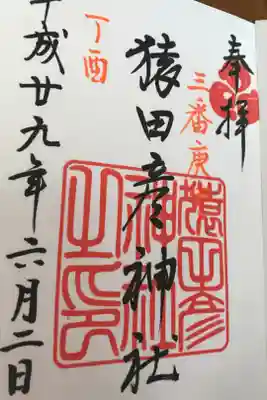 奉拝
三番庚申
猿田彦神社
猿田彦神社之印
丁酉
平成廿九年六月二日